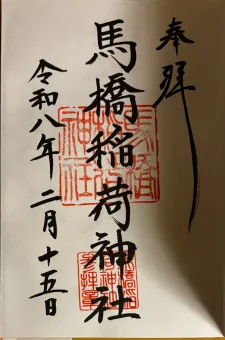 奉拝
馬橋稲荷神社
令和八年二月十五日